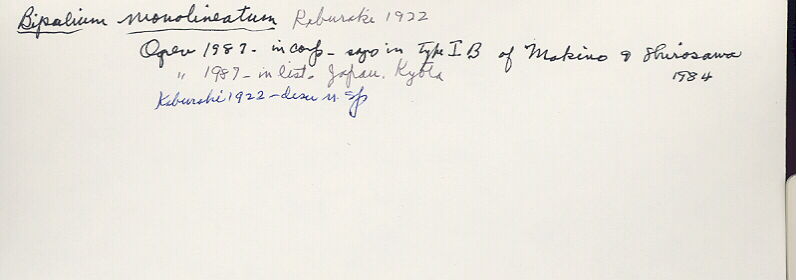 Bipalium monolineatum Kaburaki 1922
Ogren 1987 - in comp - says in type I B of Makino & Shirosawa
" 1987 - in list. Japan. Kyoto
1984
Kaburaki 1922 - descr n. sp